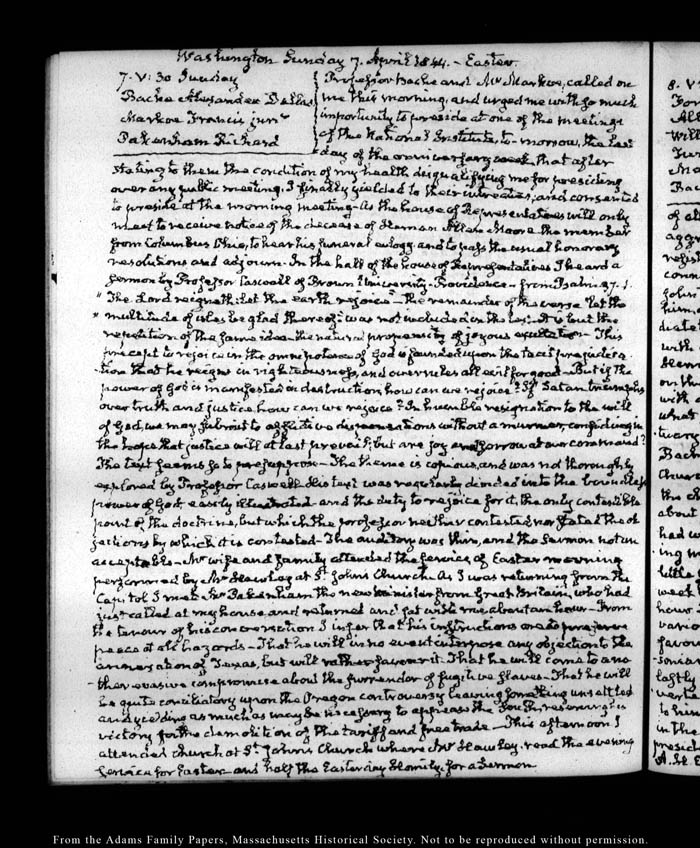 Washington Sunday 7. April 1844. - Easter.
7. V: 30 Sunday
Bache Alexander Dallas
Markoe Francis junr
Pakenham Richard
Professor Bache and Mr Markoe, called on
me this morning, and urged me with so much
importunity to preside at one of the meetings
of the National Institute, to-morrow, the last
day of the anniversary week, that after
stating to them the condition of my health disqualifying me for presiding
over any public meeting, I finally yielded to their entreaties, and consented
to preside at the morning meeting - As the house of Representatives will only
meet to receive notice of the decease of Heman Allen Moore the member
from Columbus Ohio, to hear his funeral eulogy and to pass the usual honorary
resolutions and adjourn. In the hall of the house of Representatives I heard a
Sermon by Professor Caswell of Brown University - Providence - from Psalm 97.1.
" The Lord reigneth: let the earth rejoice - The remainder of the verse "let the
" multitude of isles be glad thereof" was not included in the text. It is but the
repetition of the same idea - the natural propensity of joyous exultation - This
precept to rejoice in the omnipotence of God is founded upon the tacit
-tion that he reigns in righteousness, and overrules all evil for good - But if the
power of God is manifested in destruction how can we rejoice? If Satan triumphs
over truth and justice, how can we rejoice? In humble resignation to the will
of God, we may submit to afflictive dispensations without a murmur, confiding in
the hope that justice will at last prevail; but are joy and sorrow at our command?
The text seems so to presuppose - The theme is copious, and was not thoroughly
explored by Professor Caswell. His text was regularly divided into the boundless
power of God, easily illustrated - and the duty to rejoice for it, the only contestible
point of the doctrine, but which the professor neither contested nor stated the ob
jections by which it is contested - The auditory was thin, and the Sermon not un
acceptable - My wife and family attended the service of Easter morning
performed by Mr Hawley at St. John's Church. As I was returning from the
Capitol I met Mr Pakenham the new minister from Great Britain, who had
just called at my house and returned and sat with me about an hour - From
the tenour of his conversation I infer that his instructions are to preserve
peace at all hazards - That he will in no event interpose any objection to the
annexation of Texas, but will rather favour it. That he will come to ano
-ther evasive compromise about the surrender of fugitive slaves - That he will
be quite conciliatory upon the Oregon controversy leaving something unsettled
and yielding as much as may be necessary to appease the South, reserving
victory for the demolition of the tariff and free trade - This afternoon I
attended church at St. John's Church where Mr Hawley read the evening
service for Easter and half the Easter day Homily for a Sermon
From the Adams Family Papers, Massachusetts Historical Society. Not to be reproduced without permission.